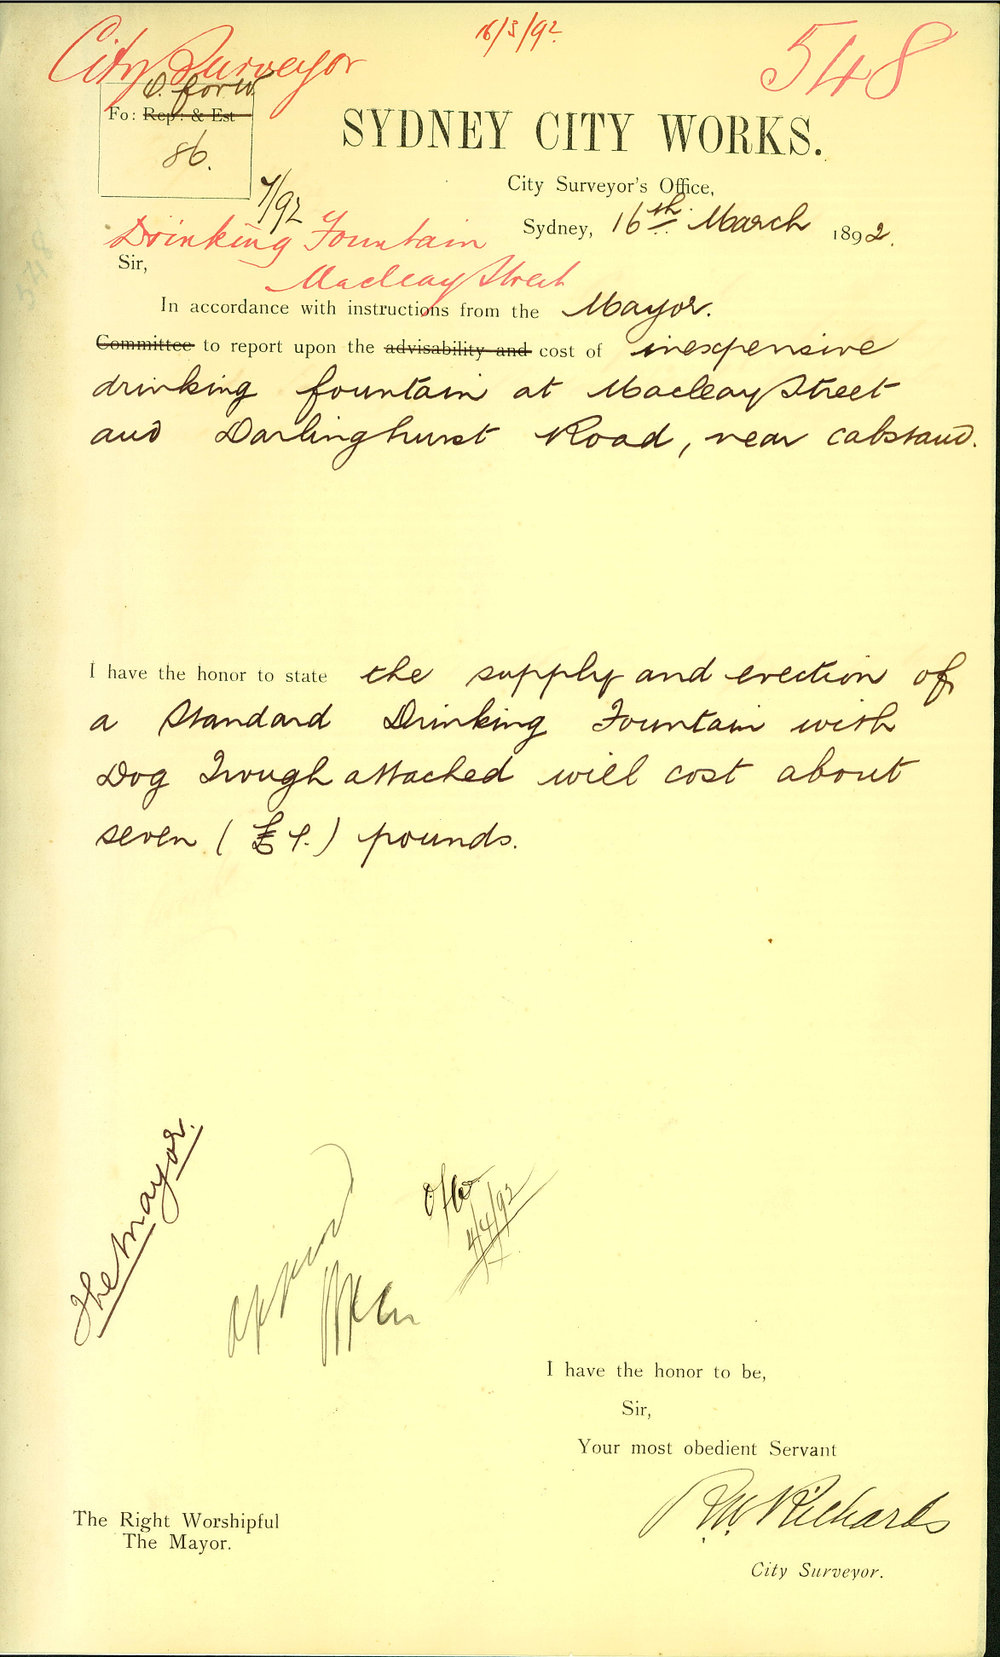 City Surveyor
16/3/92
548
O. forw
Fo: Rep: & Est
86.
7/92
SYDNEY CITY WORKS.
City Surveyor's Office,
Sydney, 16th March 1892.
Drinking Fountain
Macleay Street
Sir,
In accordance with instructions from the Mayor.
Committee to report upon the advisability and cost of inexpensive
drinking fountain at Macleay Street
and Darlinghurst Road, near cabstand.
I have the honor to state the supply and erection of
a Standard Drinking Fountain with
Dog Trough attached will cost about
seven (£7.) pounds.
The Mayor.
approved
4/4/92
I have the honor to be,
Sir,
Your most obedient Servant
R.W. Richards
City Surveyor.
The Right Worshipful
The Mayor.